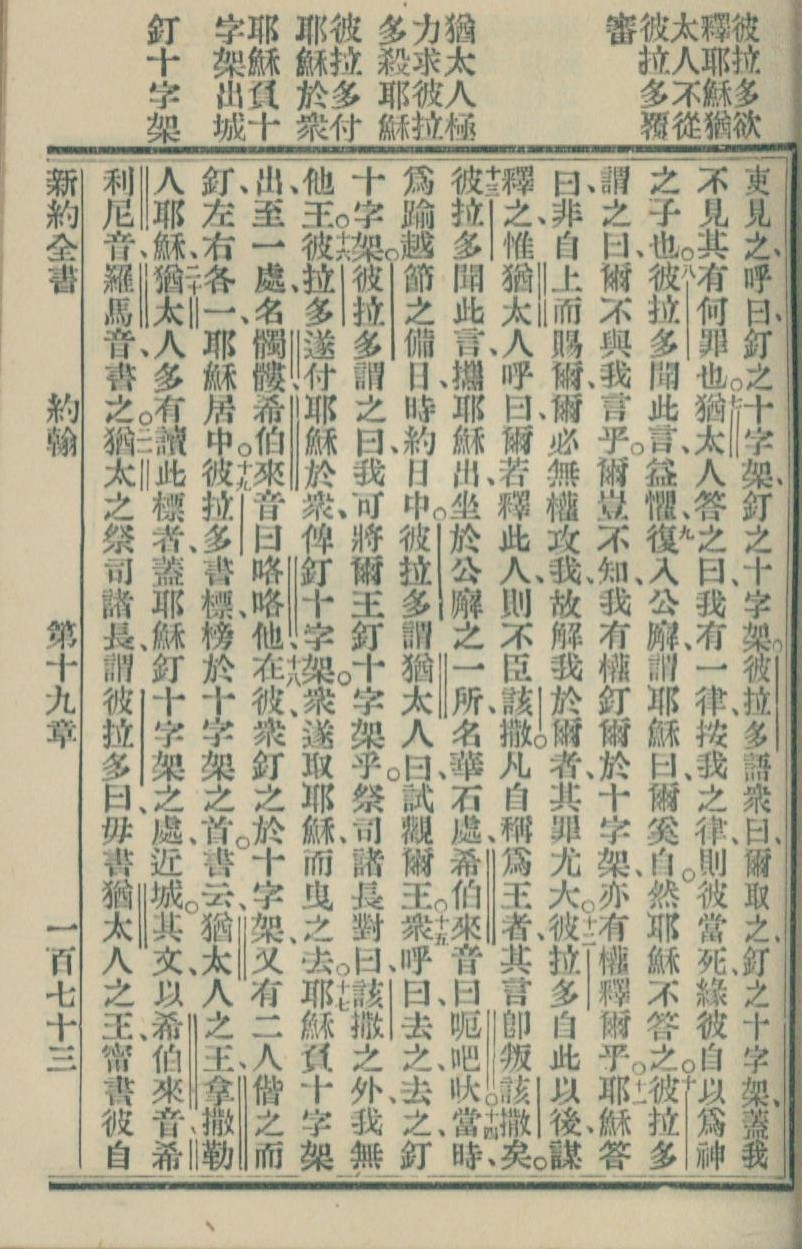 彼拉多欲
釋耶穌猶
太人不從
彼拉多覆
審
猶太人極
力求彼拉
多殺耶穌
彼拉多付
耶穌於衆
耶穌負十
字架出城
釘十字架
吏見之、呼曰、釘之十字架、釘之十字架。彼拉多語衆曰、爾取之、釘之十字架、蓋我
不見其有何罪也。七猶太人答之曰、我有一律、按我之律、則彼當死、緣彼自以爲神
之子也。八彼拉多聞此言、益懼、九復入公廨、謂耶穌曰、爾奚自。然耶穌不答之。十彼拉多
謂之曰、爾不與我言乎。爾豈不知、我有權釘爾於十字架、亦有權釋爾乎。十一耶穌答
曰、非自上而賜爾、爾必無權攻我、故解我於爾者、其罪尤大。十二彼拉多自此以後、謀
釋之、惟猶太人呼曰、爾若釋此人、則不臣該撒。凡自稱爲王者、其言卽叛該撒矣。
十三彼拉多聞此言、攜耶穌出、坐於公廨之一所、名華石處、希伯來音曰呃吧吠。十四當時、
爲踰越節之備日、時約日中。彼拉多謂猶太人曰、試觀爾王。十五衆呼曰、去之、去之、釘
十字架。彼拉多謂之曰、我可將爾王釘十字架乎。祭司諸長對曰、該撒之外、我無
他王。十六彼拉多遂付耶穌於衆、俾釘十字架。衆遂取耶穌、而曳之去。十七耶穌負十字架
出、至一處、名髑髏、希伯來音曰咯咯他、十八在彼、衆釘之於十字架、又有二人偕之而
釘、左右各一、耶穌居中。十九彼拉多書標榜於十字架之首。書云、猶太人之王、拿撒勒
人耶穌、二十猶太人多有讀此標者、蓋耶穌釘十字架之處、近城。其文、以希伯來音、希
利尼音、羅馬音、書之。二一猶太之祭司諸長、謂彼拉多曰、毋書猶太人之王、甯書彼自
新約全書 約翰 第十九章 一百七十三